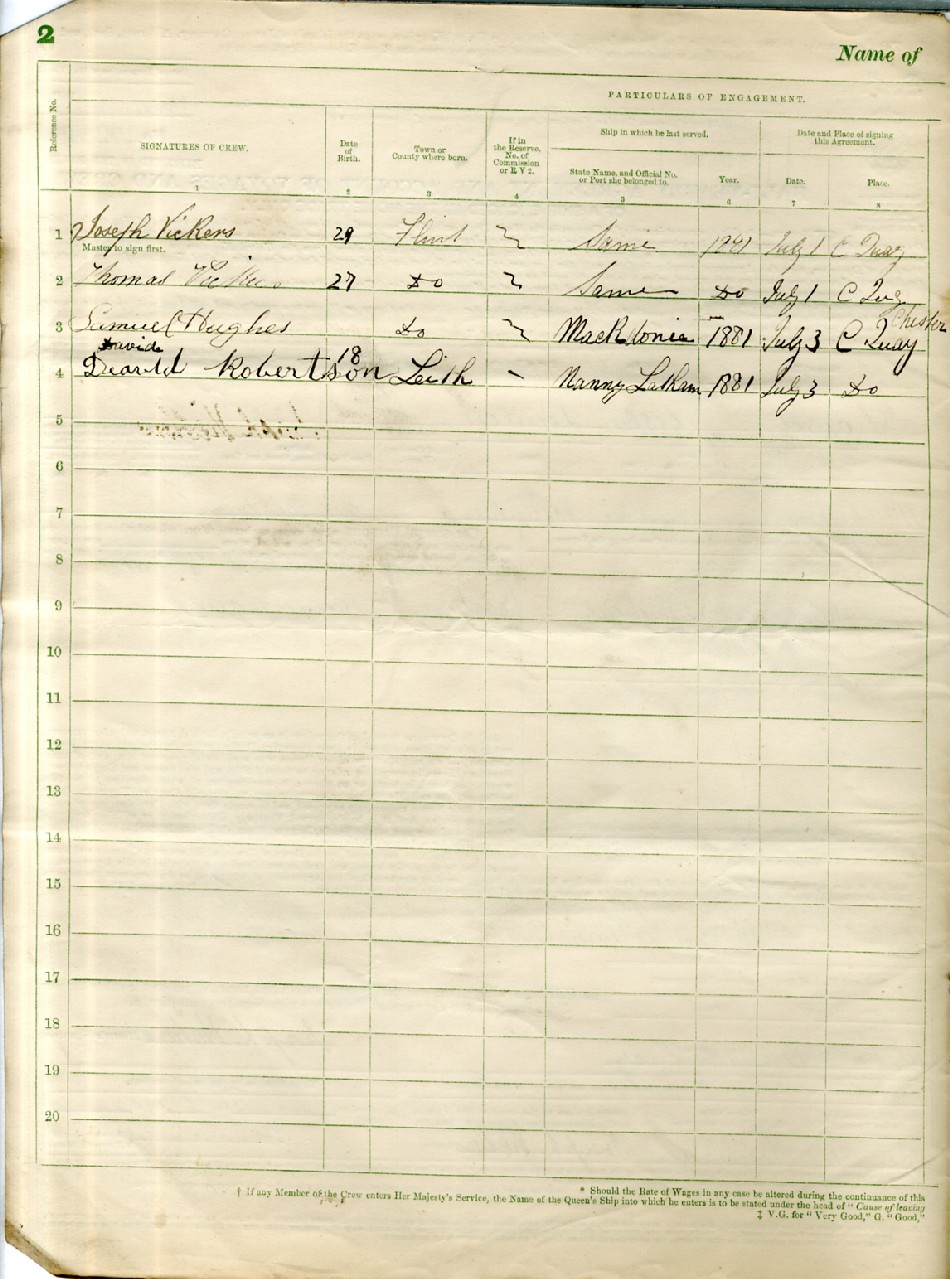 2
Name of
PARTICULARS OF ENGAGEMENT.
Reference No.
SIGNATURES OF CREW.
Date of Birth.
Town or County where born.
If in the Reserve, No. of Commission or R V 2.
Ship in which he last served.
Date and Place of signing this Agreement.
State Name, and Official No. or Port she belonged to.
Year.
Date.
Place.
1 2 3 4 5 6 7 8
1 Joseph Vickers 29 Flint Same 1881 July 1 C Quay
Master to sign first.
2 Thomas 27 Do Same Do July 1 C Quay
Chester
3 Samuel Hughes Do 1881 July 3 C Quay
David
4 Robertson 18 Leith Nanny Latham 1881 July 3 Do
5
6
7
8
9
10
11
12
13
14
15
16
17
18
19
20
* Should the Rate of Wages in any case be altered during the continuance of this
† If any Member of the Crew enters Her Majesty's Service, the Name of the Queen's Ship into which he enters is to be stated under the head of "Cause of leaving
‡ V.G. for "Very Good," G. "Good,"